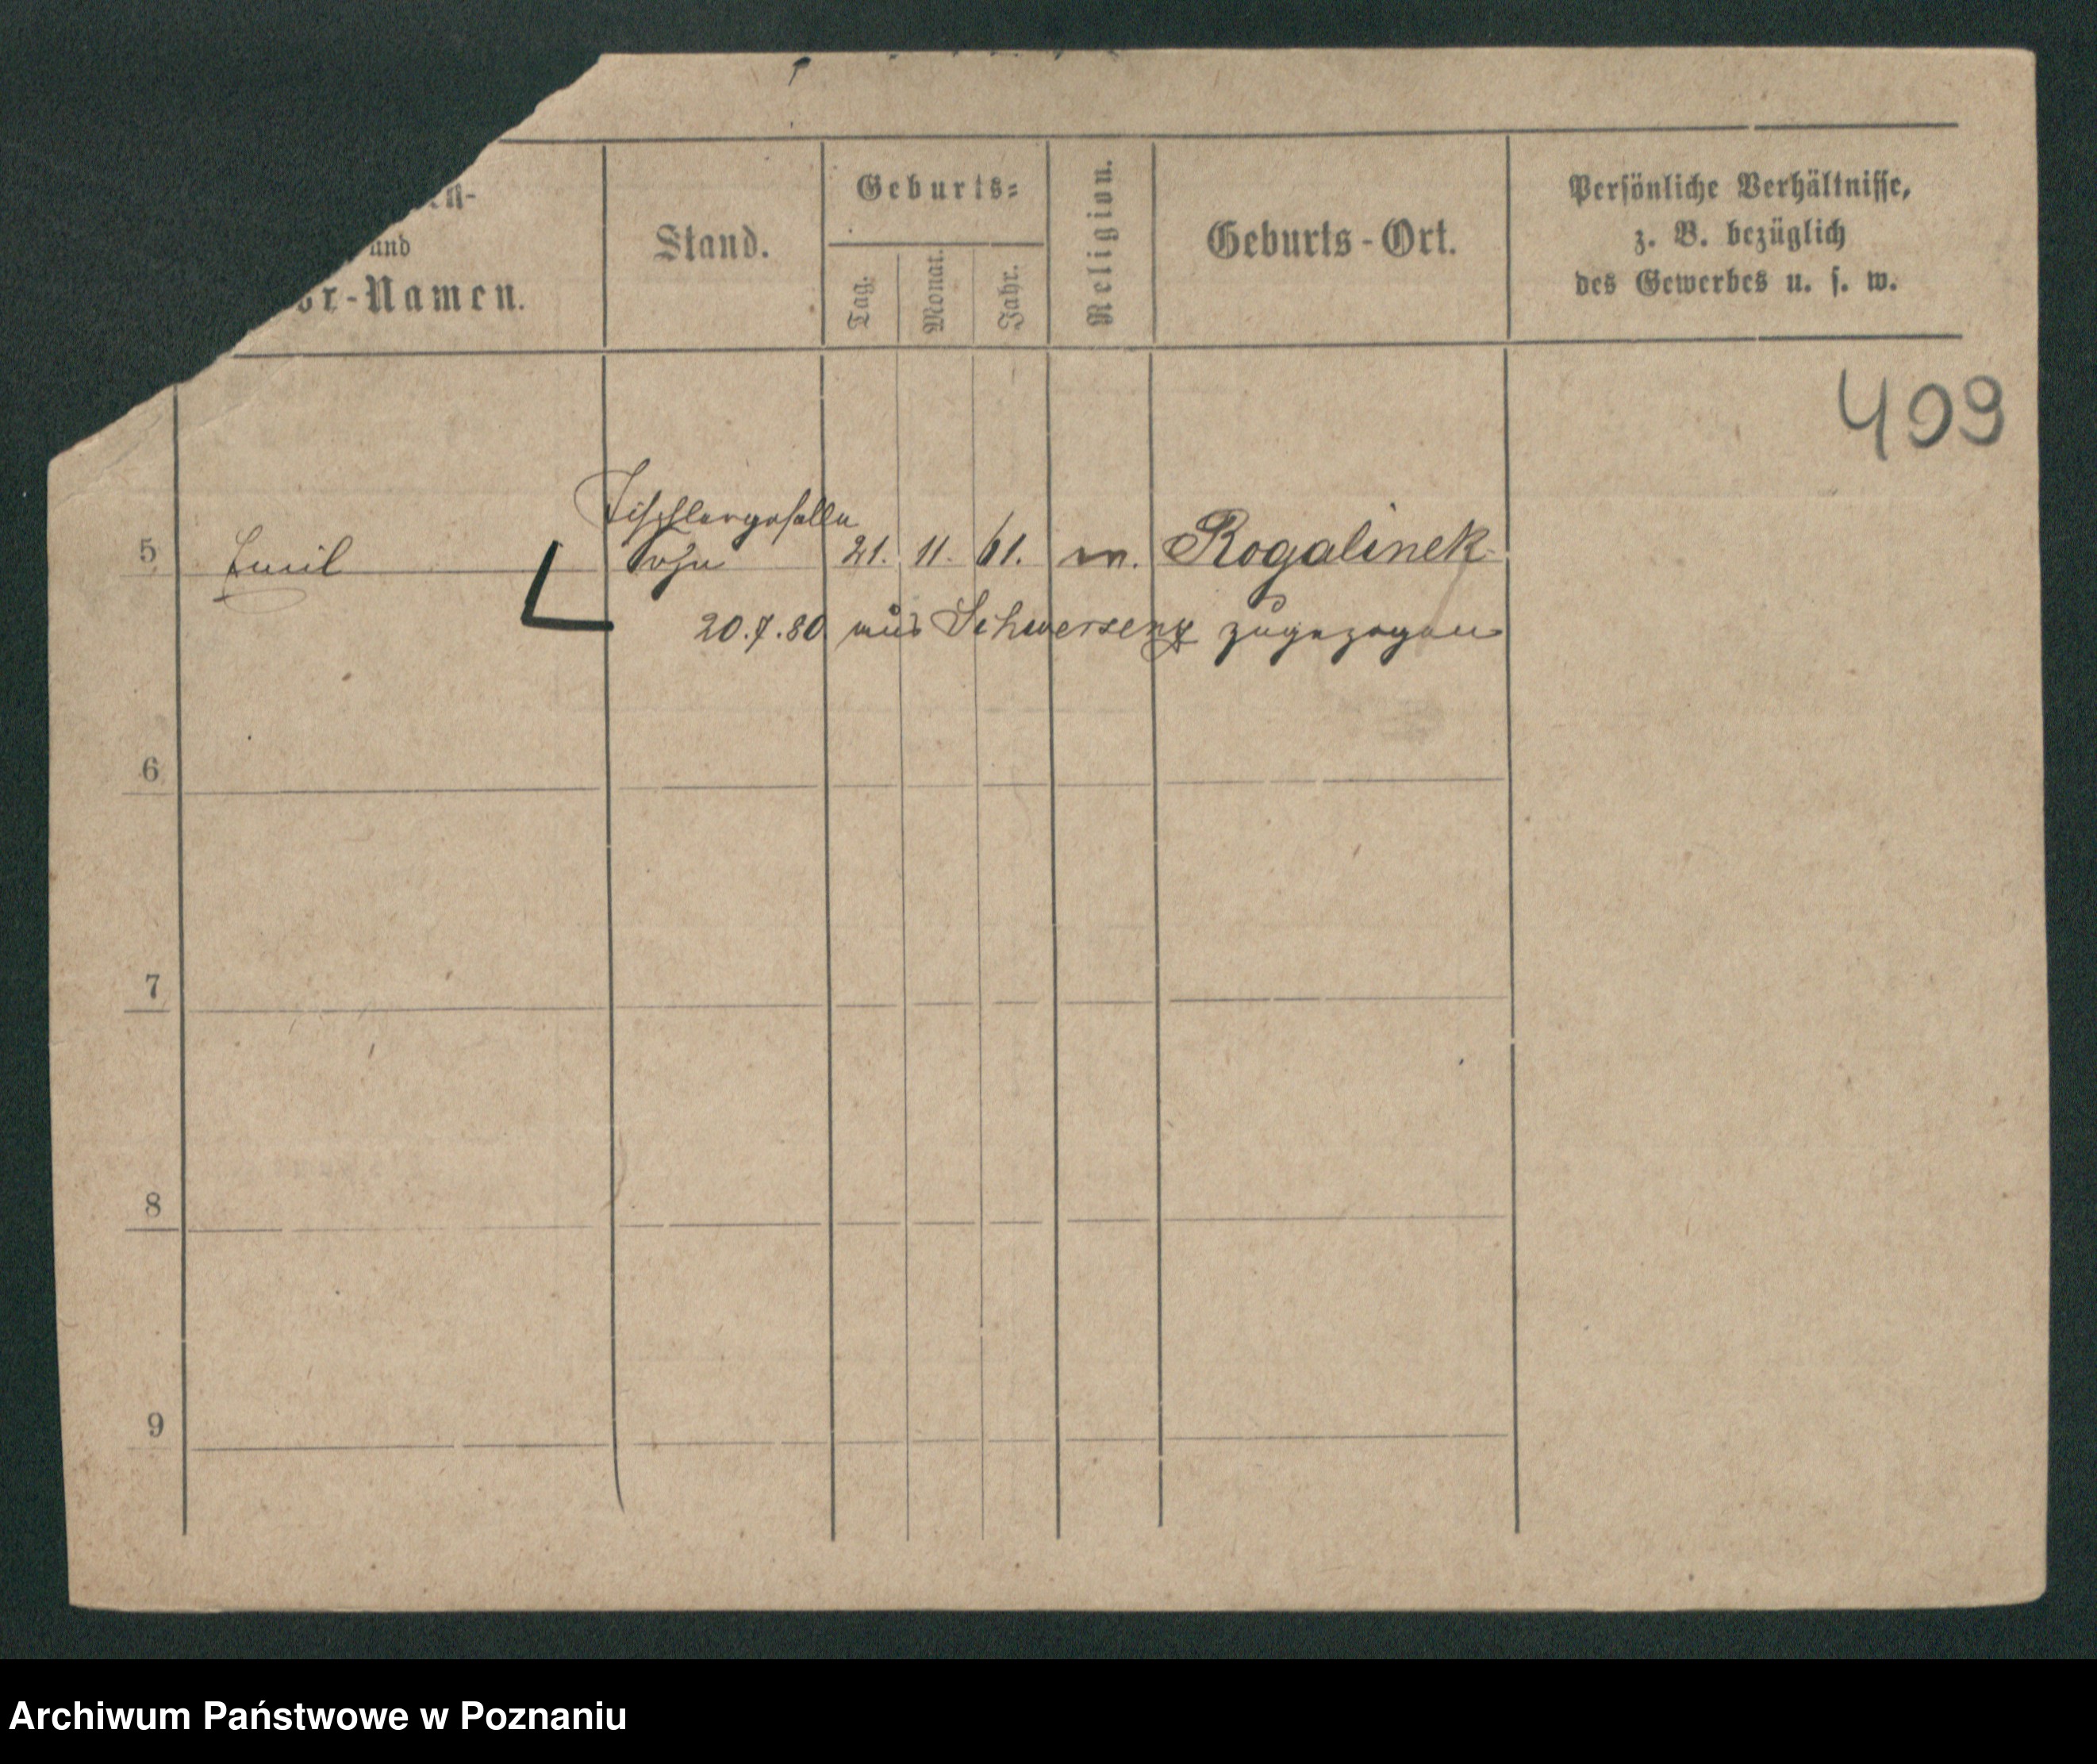 und
r-Namen.
Stand.
Geburts-
Tag.
Monat.
Jahr.
Religion.
Geburts-Ort.
Persönliche Verhältnisse,
z. B. bezüglich
des Gewerbes u. s. w.
409
Tischlergeselle
5 Emil Sohn 21. 11. 61. m. Rogalinek
20.7.80 aus Schwersenz zugezogen
6
7
8
9
Archiwum Państwowe w Poznaniu